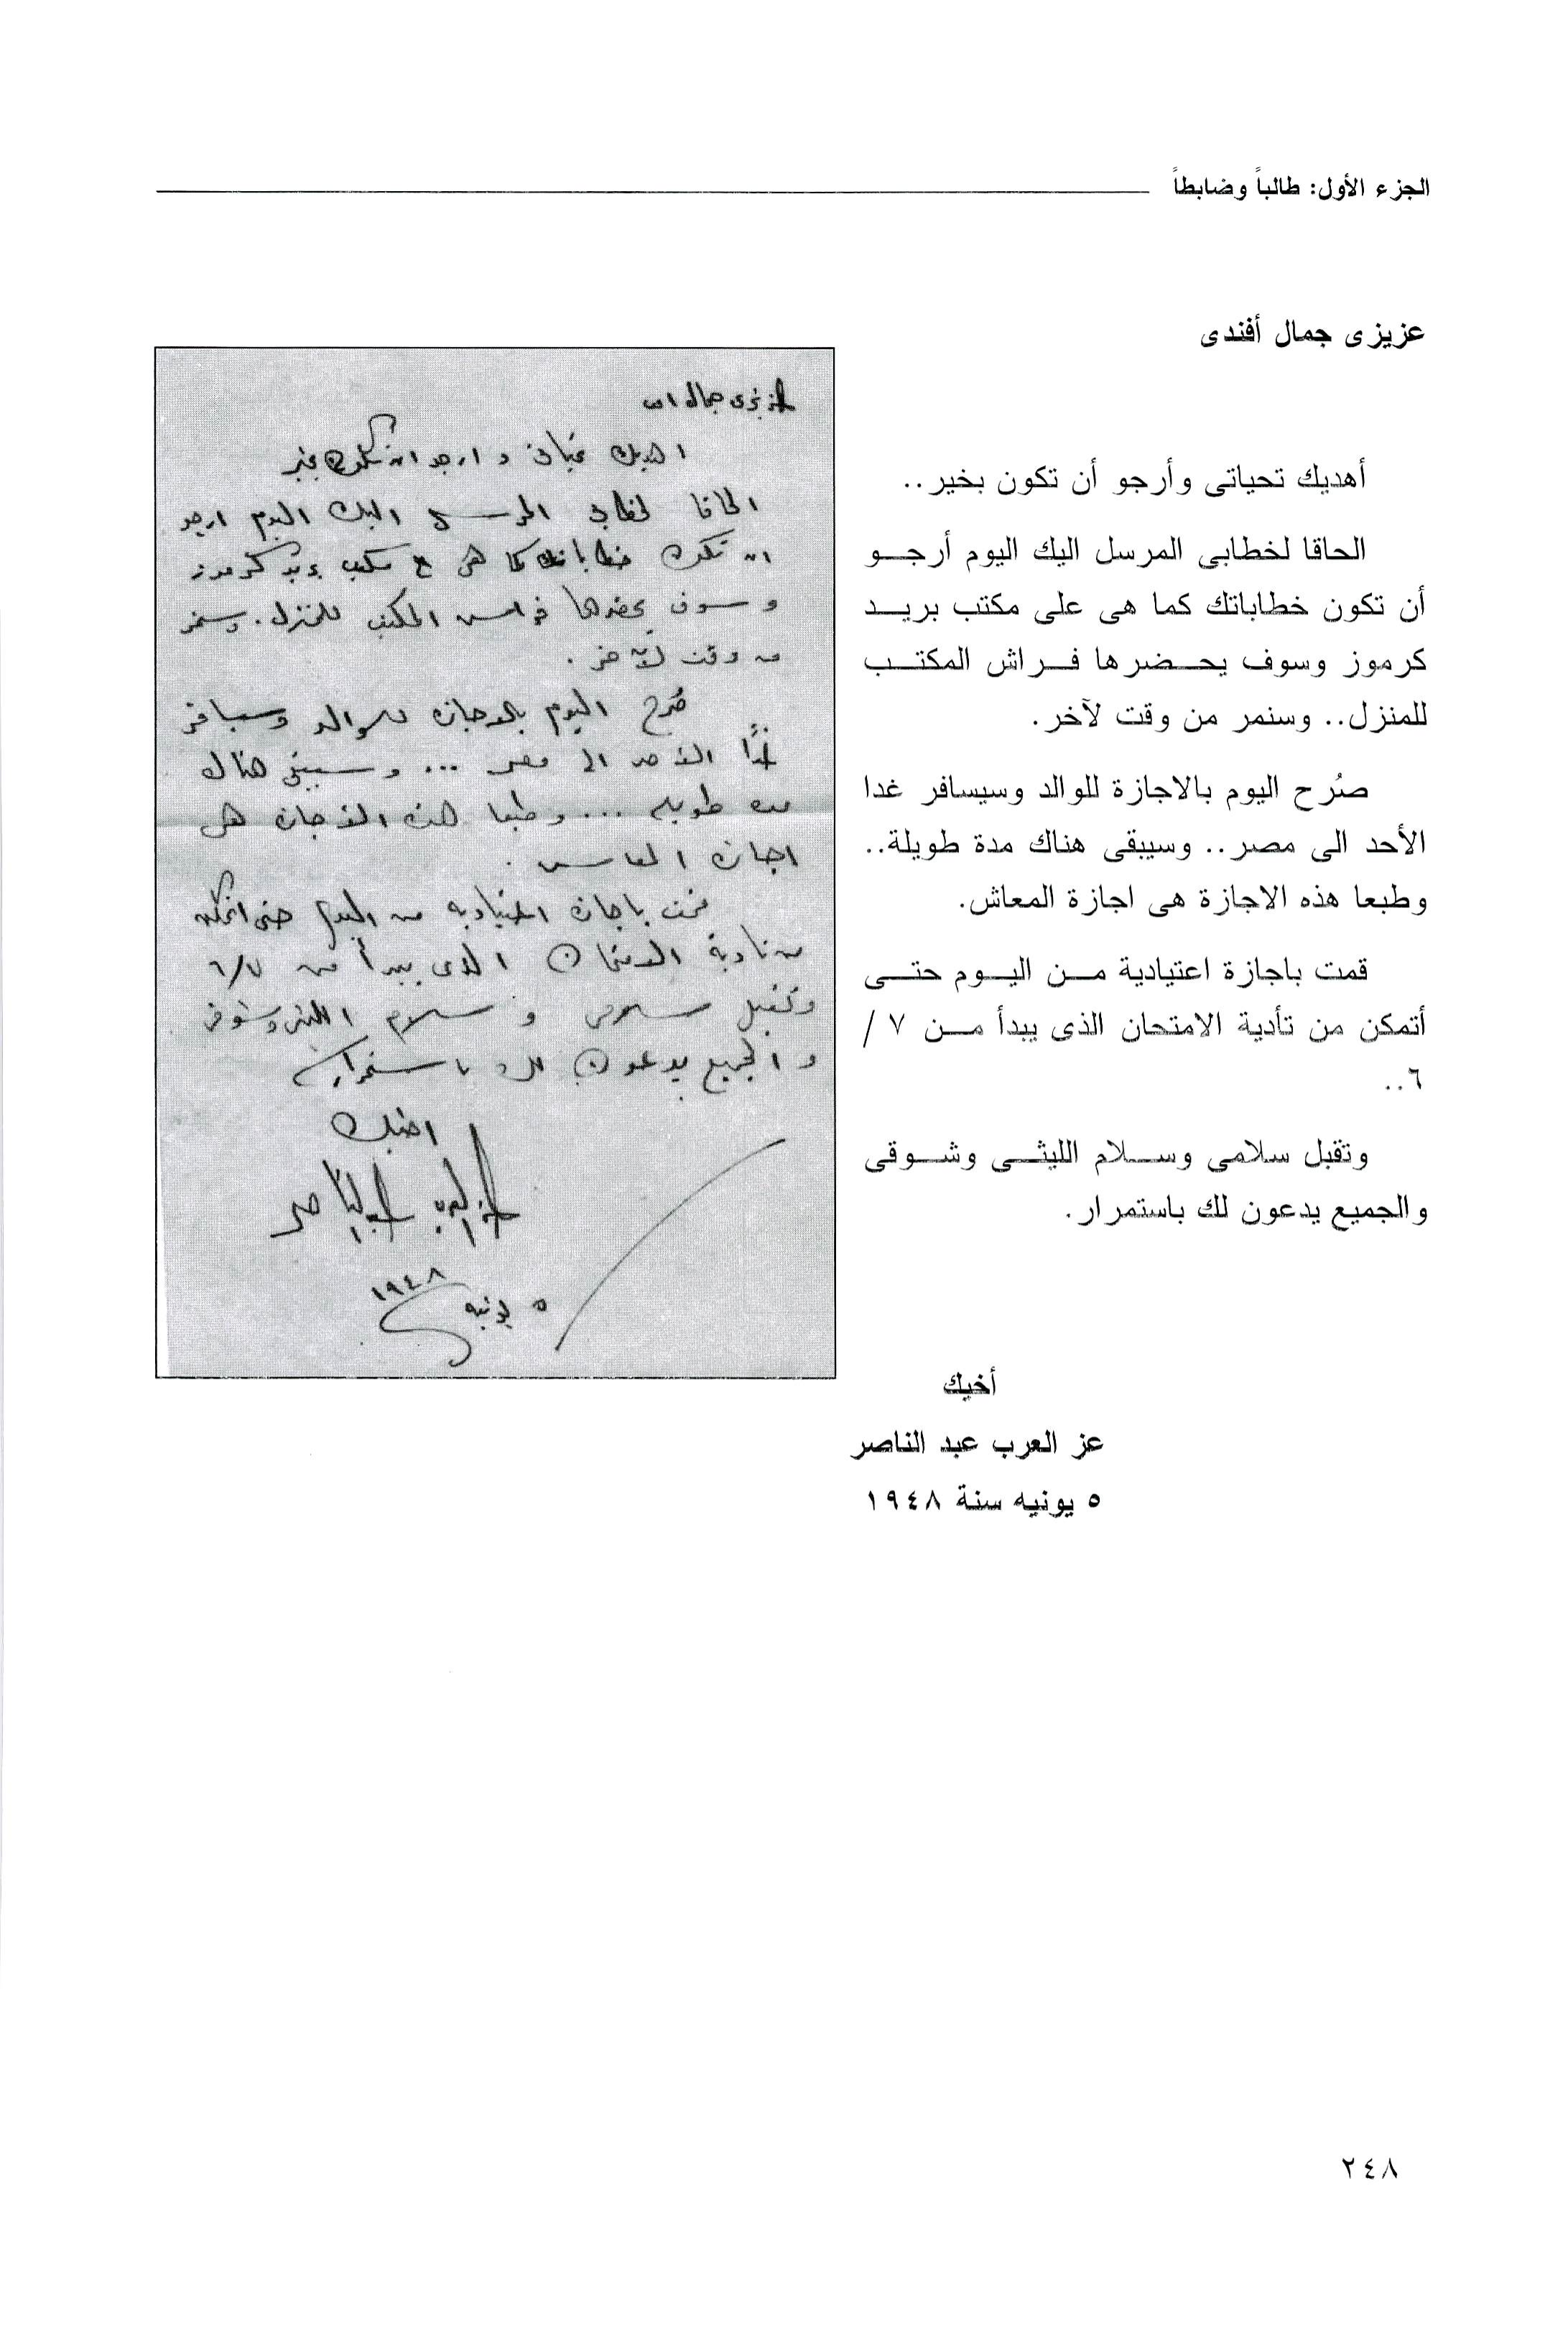 الجزء الأول: طالباً وضابطاً
عزيزى جمال أفندى
أهديك تحياتى وأرجو أن تكون بخير..
الحاقا لخطابى المرسل اليك اليوم أرجو
أن تكون خطاباتك كما هى على مكتب بريد
كرموز وسوف يحضرها فراش المكتب
للمنزل.. وسنمر من وقت لآخر.
صُرح اليوم بالاجازة للوالد وسيسافر غدا
الأحد الى مصر.. وسيبقى هناك مدة طويلة..
وطبعا هذه الاجازة هى اجازة المعاش.
قمت باجازة اعتيادية من اليوم حتى
أتمكن من تأدية الامتحان الذى يبدأ من ٧ /
٦..
وتقبل سلامى وسلام الليثى وشوقى
والجميع يدعون لك باستمرار.
أخيك
عز العرب عبد الناصر
٥ يونيه سنة ١٩٤٨
عزيزى جمال
اهديك تحياتى وارجو ان تكون بخير
الحاقا لخطابى المرسل اليك اليوم ارجو
ان تكون خطاباتك كما هى ع مكتب بريد كرموز
وسوف يحضرها فراش المكتب للمنزل. وسنمر
من وقت لآخر.
صُرح اليوم بالاجازه للوالد وسيسافر
غداً الأحد الى مصر ... وسيبقى هناك
مده طويله ... وطبعا هذه الاجازه هى
اجازة المعاش.
قمت باجازه اعتياديه من اليوم حتى اتمكن
من تادية الامتحان الذى يبدأ من ٦/٧
وتقبل سلامى وسلام الليثى وشوقى
والجميع يدعون لك باستمرار
اخيك
عز العرب عبد الناصر
٥ يونيه ١٩٤٨
٢٤٨